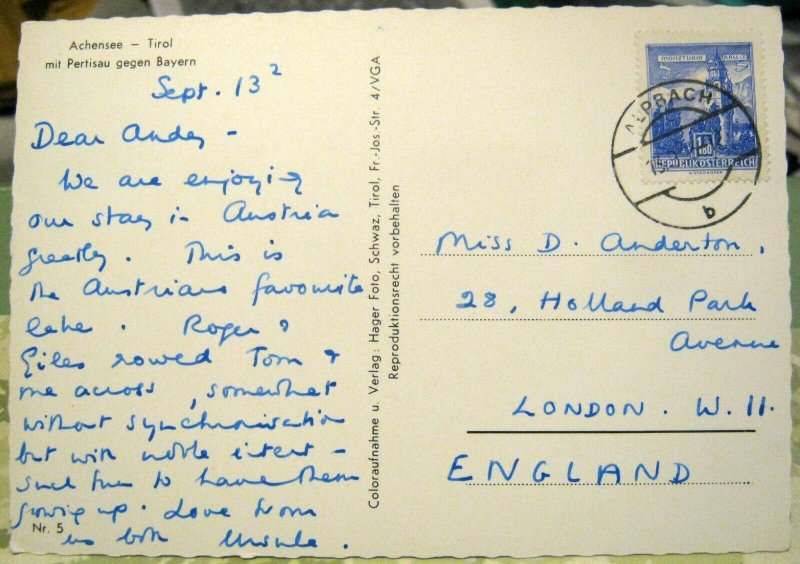 Achensee – Tirol
mit Pertisau gegen Bayern
Sept. 13
Dear Andy –
We are enjoying
our stay in Austria
greatly. This is
the Austrians favourite
lake. Roger &
Giles rowed Tom &
me across, somewhat
without synchronisation
but with noble intent –
such fun to have them
growing up. Love from
us both Ursula.
Nr. 5
Coloraufnahme u. Verlag: Hager Foto, Schwaz, Tirol, Fr.-Jos.-Str. 4/VGA
Reproduktionsrecht vorbehalten
MÜNZTURM HALL i. T.
1.80
REPUBLIK ÖSTERREICH
ALPBACH
b
Miss D. Anderton,
28, Holland Park
Avenue
LONDON. W. 11.
ENGLAND